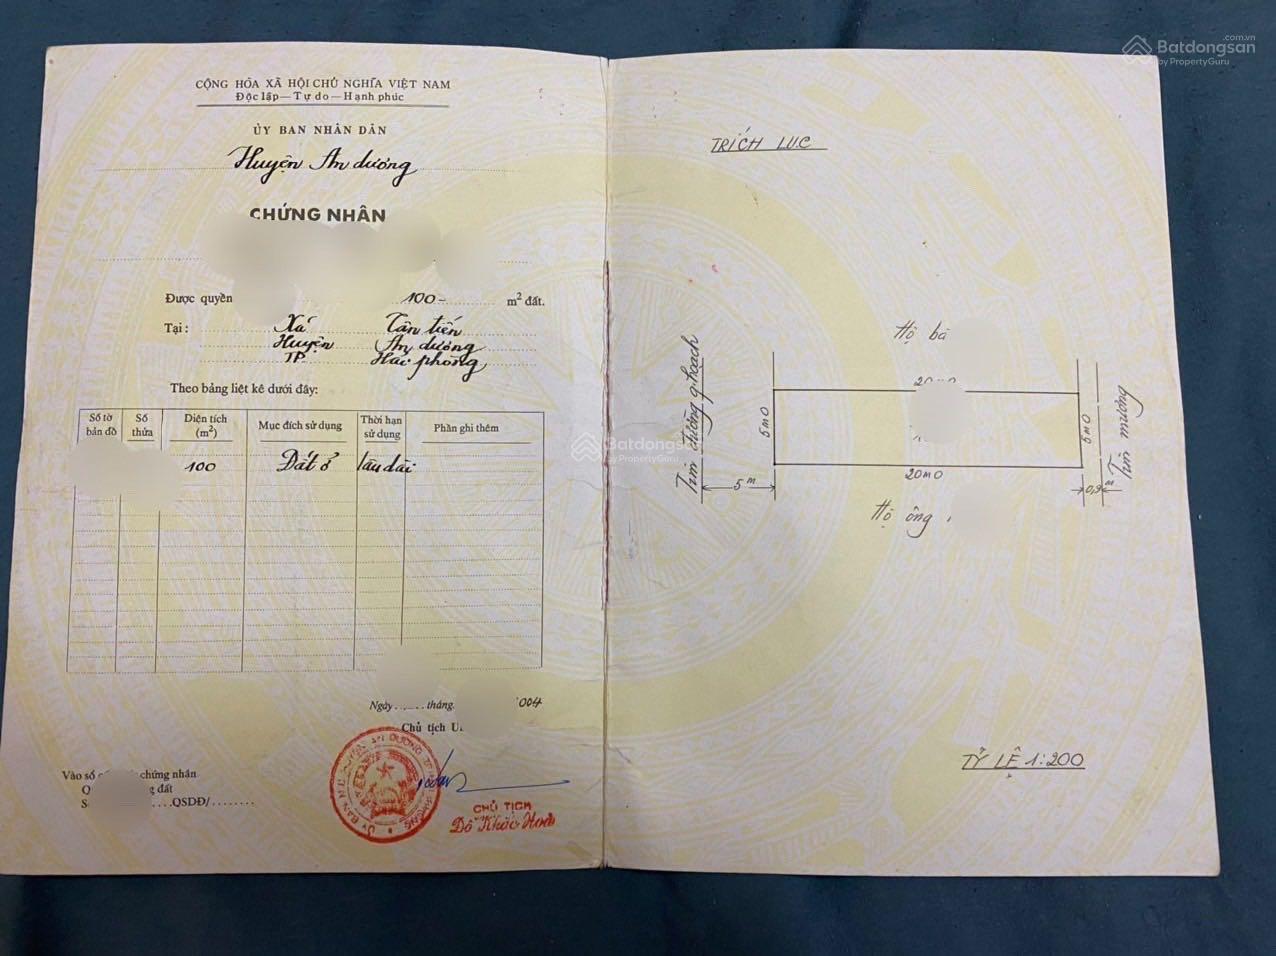 Batdongsan.com.vn
by PropertyGuru
CỘNG HÒA XÃ HỘI CHỦ NGHĨA VIỆT NAM
Độc lập — Tự do — Hạnh phúc
ỦY BAN NHÂN DÂN
Huyện An dương
CHỨNG NHẬN
Được quyền 100- m² đất.
Tại: Xã Tân tiến
Huyện An dương
TP. Hải phòng
Theo bảng liệt kê dưới đây:
Số tờ bản đồ Số thửa Diện tích (m²) Mục đích sử dụng Thời hạn sử dụng Phần ghi thêm
100 Đất ở lâu dài
Ngày.....tháng. 004
Chủ tịch U
CHỦ TỊCH
Đỗ Khắc Hoà
Vào sổ chứng nhận
Q g đất
S ....QSDĐ/........
TRÍCH LỤC
Hộ bà
20m0
Tim đường q.hoạch
5m0
5m0
Tim mương
20m0
5m
0,9m
Hộ ông
TỶ LỆ 1:200
Batdongsan
by PropertyGuru